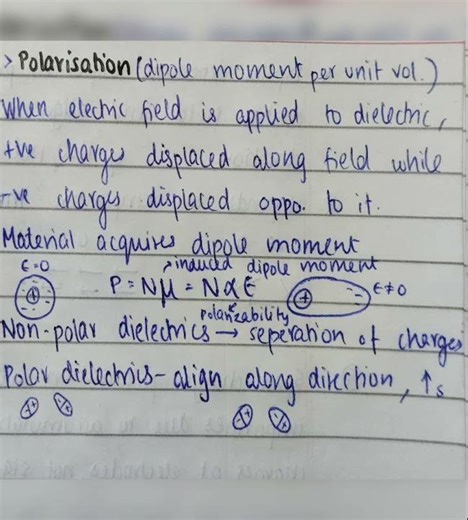 > Polarisation (dipole moment per unit vol.)
When electric field is applied to dielectric,
+ve charges displaced along field while
-ve charges displaced oppo. to it.
Material acquires dipole moment
E=0
induced dipole moment
P = Nμ = NαE
E≠0
Polarizability
Non-polar dielectrics → seperation of charges
Polar dielectrics - align along direction, ↑s